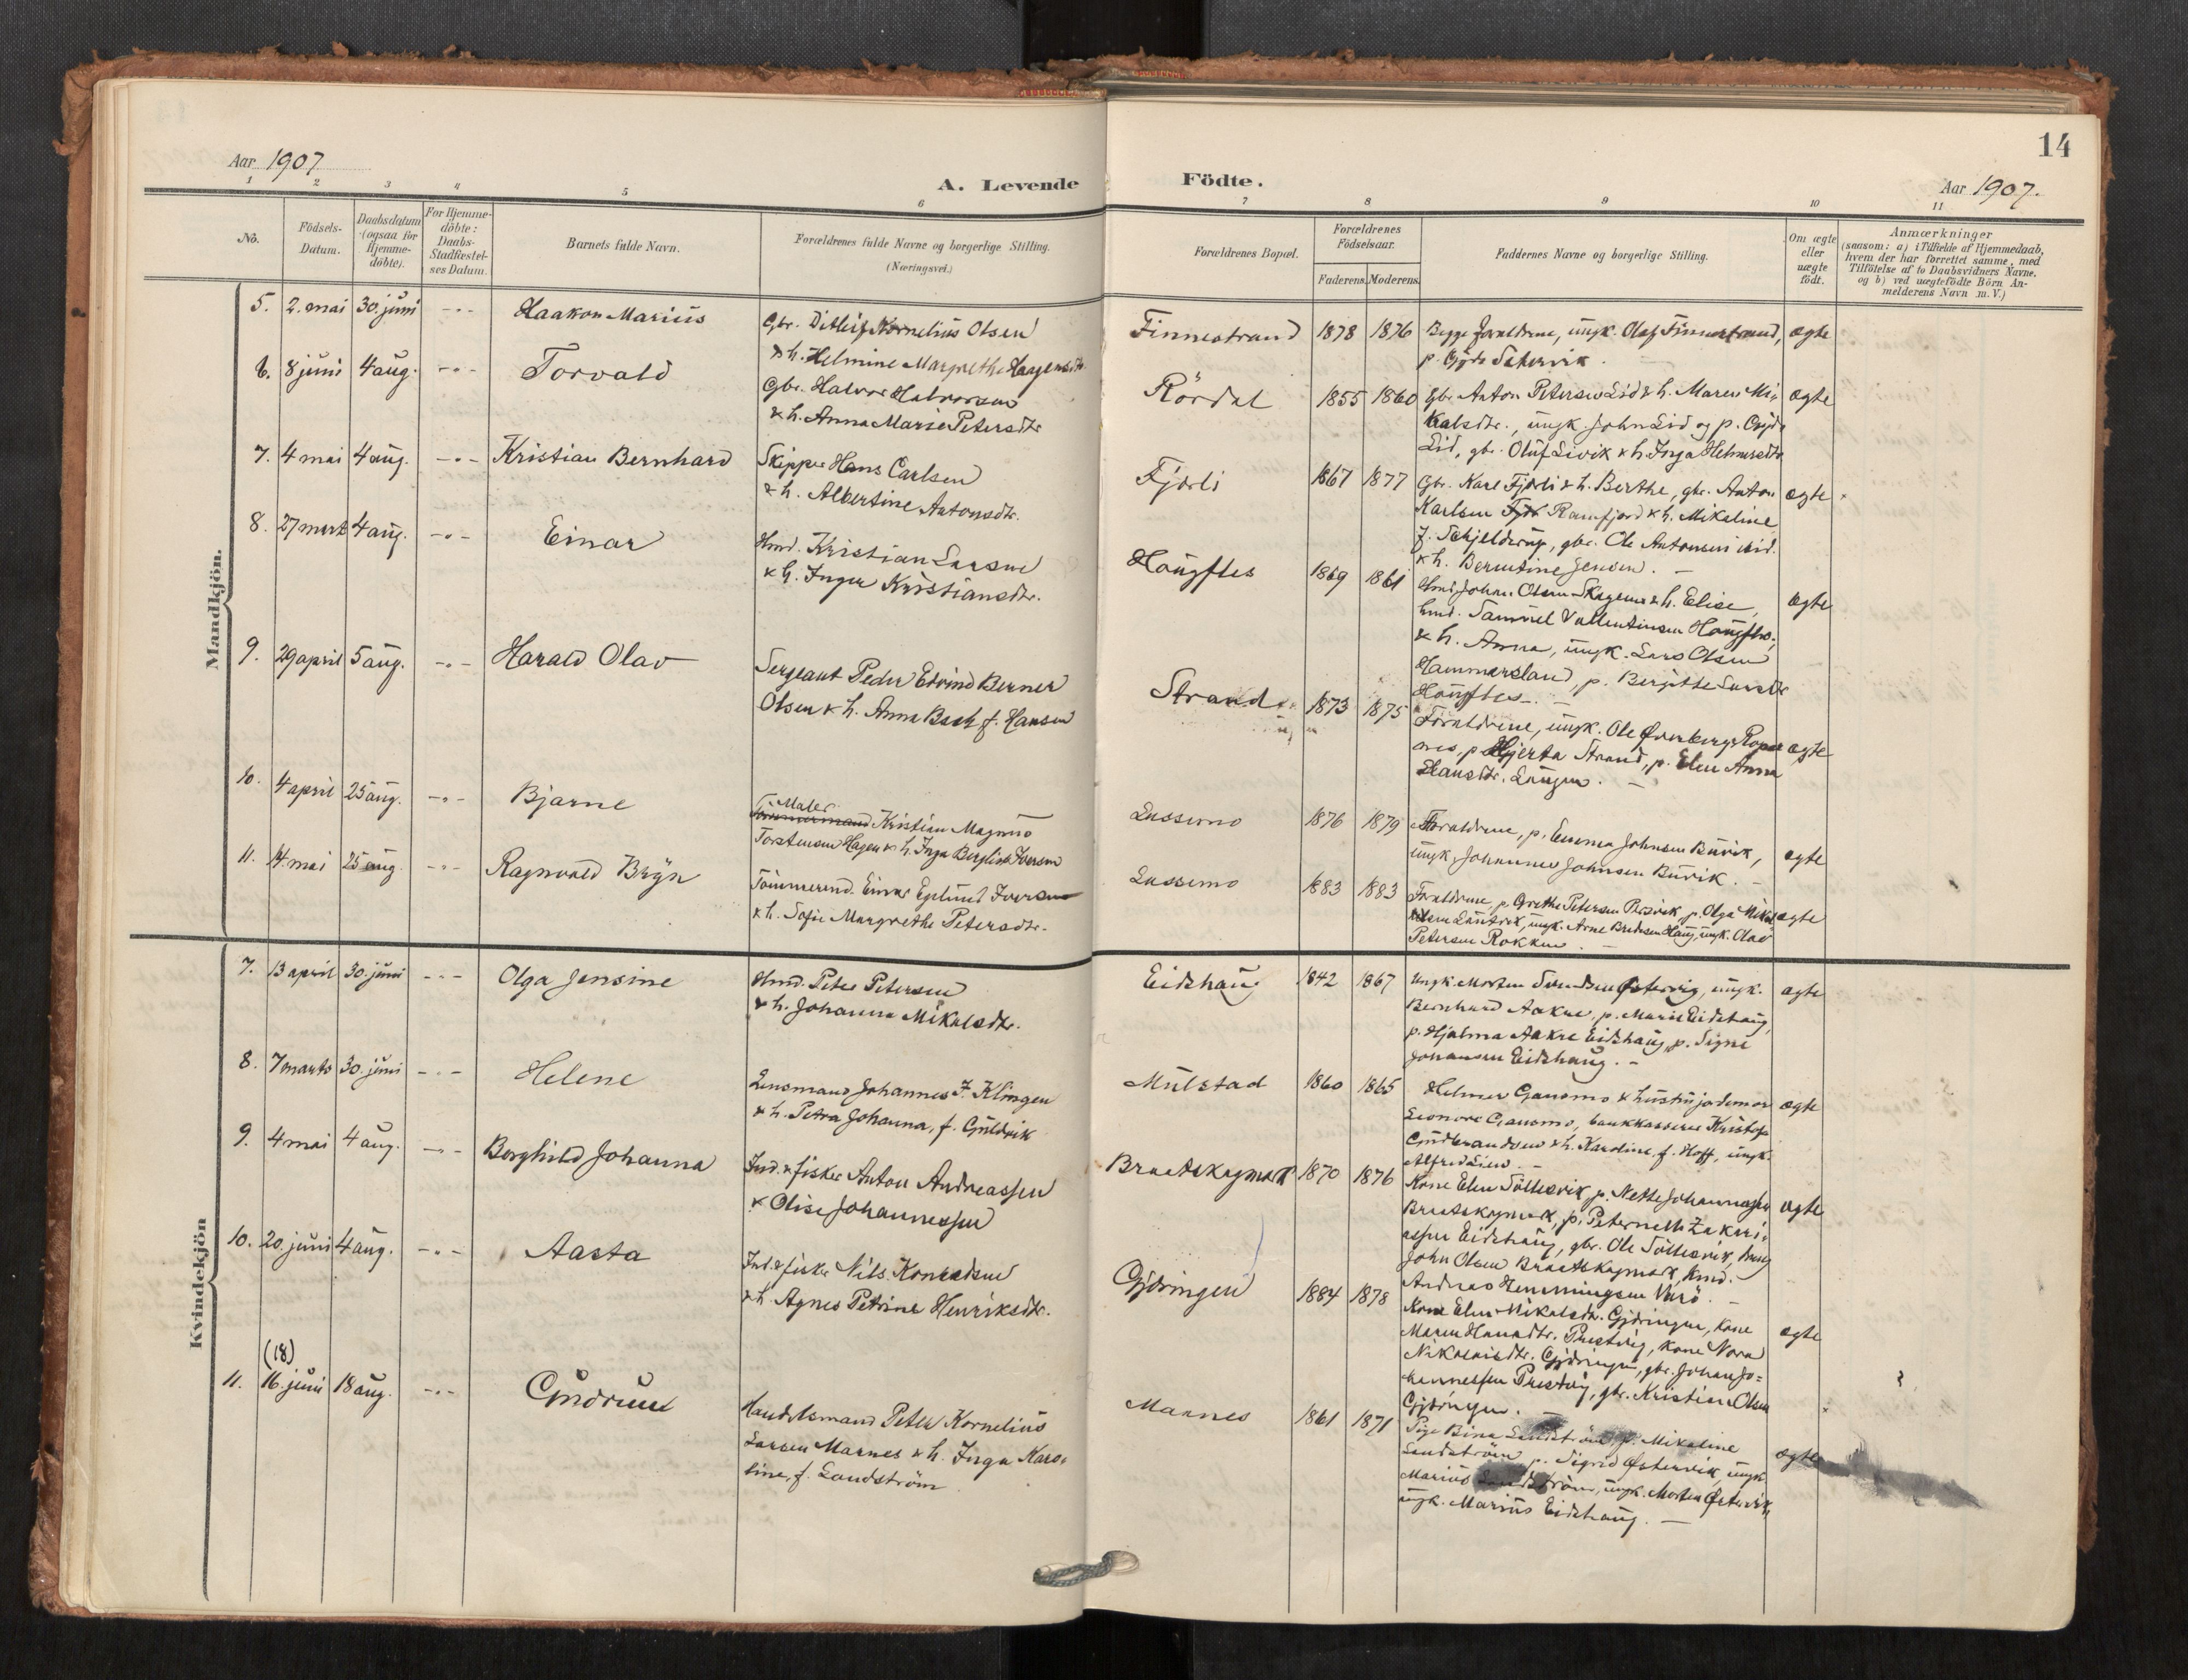 14
Aar 1907
A. Levende
Födte.
Aar 1907.
1 2 3 4 5 6 7 8 9 10 11
No.
Födsels-
Datum.
Daabsdatum
(ogsaa for
Hjemme-
döbte).
For Hjemme-
döbte:
Daabs-
Stadfæstel-
ses Datum.
Barnets fulde Navn.
Forældrenes fulde Navne og borgerlige Stilling.
(Næringsvei.)
Forældrenes Bopæl.
Forældrenes
Födselsaar.
Faderens. Moderens.
Faddernes Navne og borgerlige Stilling.
Om ægte
eller
uægte
födt.
Anmærkninger
(saasom: a) i Tilfælde af Hjemmedaab,
hvem der har forrettet samme, med
Tilföielse af to Daabsvidners Navne.
og b) ved uægtefödte Börn An-
melderens Navn m. V.)
Mandkjön.
5. 2. mai 30. juni -"- Haakon Marius
Gbr. Ditlef Kornelius Olsen
& h. Helmine Margrethe Hagensdtr.
Finnestrand 1878 1876
Begge forældrene, ungk. Olaf Finnestrand,
p. Gyda Sætervik.
ægte
6. 8 juni 4 aug. -"- Torvald
Gbr. Halvor Halvorsen
& h. Anna Marie Petersdtr.
Rördal 1855 1860
Gbr. Anton Petersen Lid & h. Maren Mi-
kalsdtr., ungk. John Lid og p. Gyda
Lid, gbr. Oluf Livik & h. Inga Helmersdtr.
ægte
7. 4 mai 4 aug. -"- Kristian Bernhard
Skipper Hans Carlsen
& h. Albertine Antonsdtr.
Fjærli 1867 1877
Gbr. Karl Fjærli & h. Berthe, gbr. Anton
Karlsen Ramfjord & h. Mikaline
f. Schjelderup, gbr. Ole Antonsen ibid.
& h. Berntine Jensen.
ægte
8. 27 marts 4 aug. -"- Einar
Hmd. Kristian Larsen
& h. Inger Kristiansdtr.
Haugfles 1869 1861
Hmd. Johan Olsen Skagen & h. Elise,
hmd. Samuel Vallentinsen Haugfles,
& h. Anna, ungk. Lars Olsen
Hammarsland, p. Bergitte Larsdtr.
Haugfles.
ægte
9. 29 april 5 aug. -"- Harald Olav
Sergeant Peder Edvind Berner
Olsen & h. Anna Bach f. Hansen
Strand 1873 1875
Forældrene, ungk. Ole
p. Hjerta Strand, p. Elen Anna
Hansdtr. Langen.
ægte
10. 4 april 25 aug. -"- Bjarne
Maler
Tömmermand Kristian Magnus
Torstensen Hagen & h. Inga Bergliot Iversen
Lassemo 1876 1879
Forældrene, p. Emma Johnsen Burvik,
ungk. Johannes Johnsen Burvik.
ægte
11. 14. mai 25 aug. -"- Ragnvald Bryn
Tömmermd. Einar Eglund Iversen
& h. Sofie Margrethe Petersdtr.
Lassemo 1883 1883
Forældrene, p. Grethe Petersen p. Olga
ungk. Arne Bredesen Haug, ungk. Olav
Petersen Rokkum.
ægte
Kvindekjön
7. 13 april 30. juni -"- Olga Jensine
Hmd. Peter Petersen
& h. Johanna Mikalsdtr.
Eidshaug 1842 1867
Ungk. Morten Svendsen Østervig, ungk.
Bernhard Aakre, p. Marie Eidshaug,
p. Hjalma Aakre Eidshaug, p. Signe
Johansen Eidshaug.
ægte
8. 7 marts 30. juni -"- Helene
Lensmand Johannes F. Klingen
& h. Petra Johanna, f. Guldvik
Mulstad 1860 1865
Helmer Gansmo & hustru jordemor
Leonore Gansmo, bankkasserer Kristofer
Gudbrandsen & h. Karoline, f. Hoff, ungk.
Alfred Lien.
ægte
9. 4 mai 4 aug. -"- Borghild Johanna
Ind. & fisker Anton Andreassen
& Olise Johannessen
Braatskagmark 1870 1876
Kone Elen Söllesvik, p. Nette Johannesen
Braatskagmark, p. Peternelle Zakari-
assen Eidshaug, gbr. Ole Söllesvik,
John Olsen Braatskagmark, hmd.
Andreas Henningsen Værö.
ægte
10. 20. juni 4 aug. -"- Aasta
Ind. & fisker Nils Konradsen
& h. Agnes Petrine Henriksdtr.
Gjæringen 1884 1878
Kone Elen Mikalsdtr. Gjæringen, kone
Maren Hansdtr. Prestvig, kone Nora
Nikolaisdtr. Gjæringen, gbr. Johan Jo-
hannessen Prestvig, gbr. Kristian Olsen
Gjæringen.
ægte
11. (18) 16. juni 18 aug. -"- Gudrun
Handelsmand Peter Kornelius
Larsen Marnes & h. Inga Karo-
line, f. Sandström
Marnes 1861 1871
Pige Bina Sandström, p. Mikaline
Sandström, p. Sigrid Østervik, ungk.
Marius Sandström, ungk. Morten Østervik,
ungk. Marius Eidshaug.
ægte